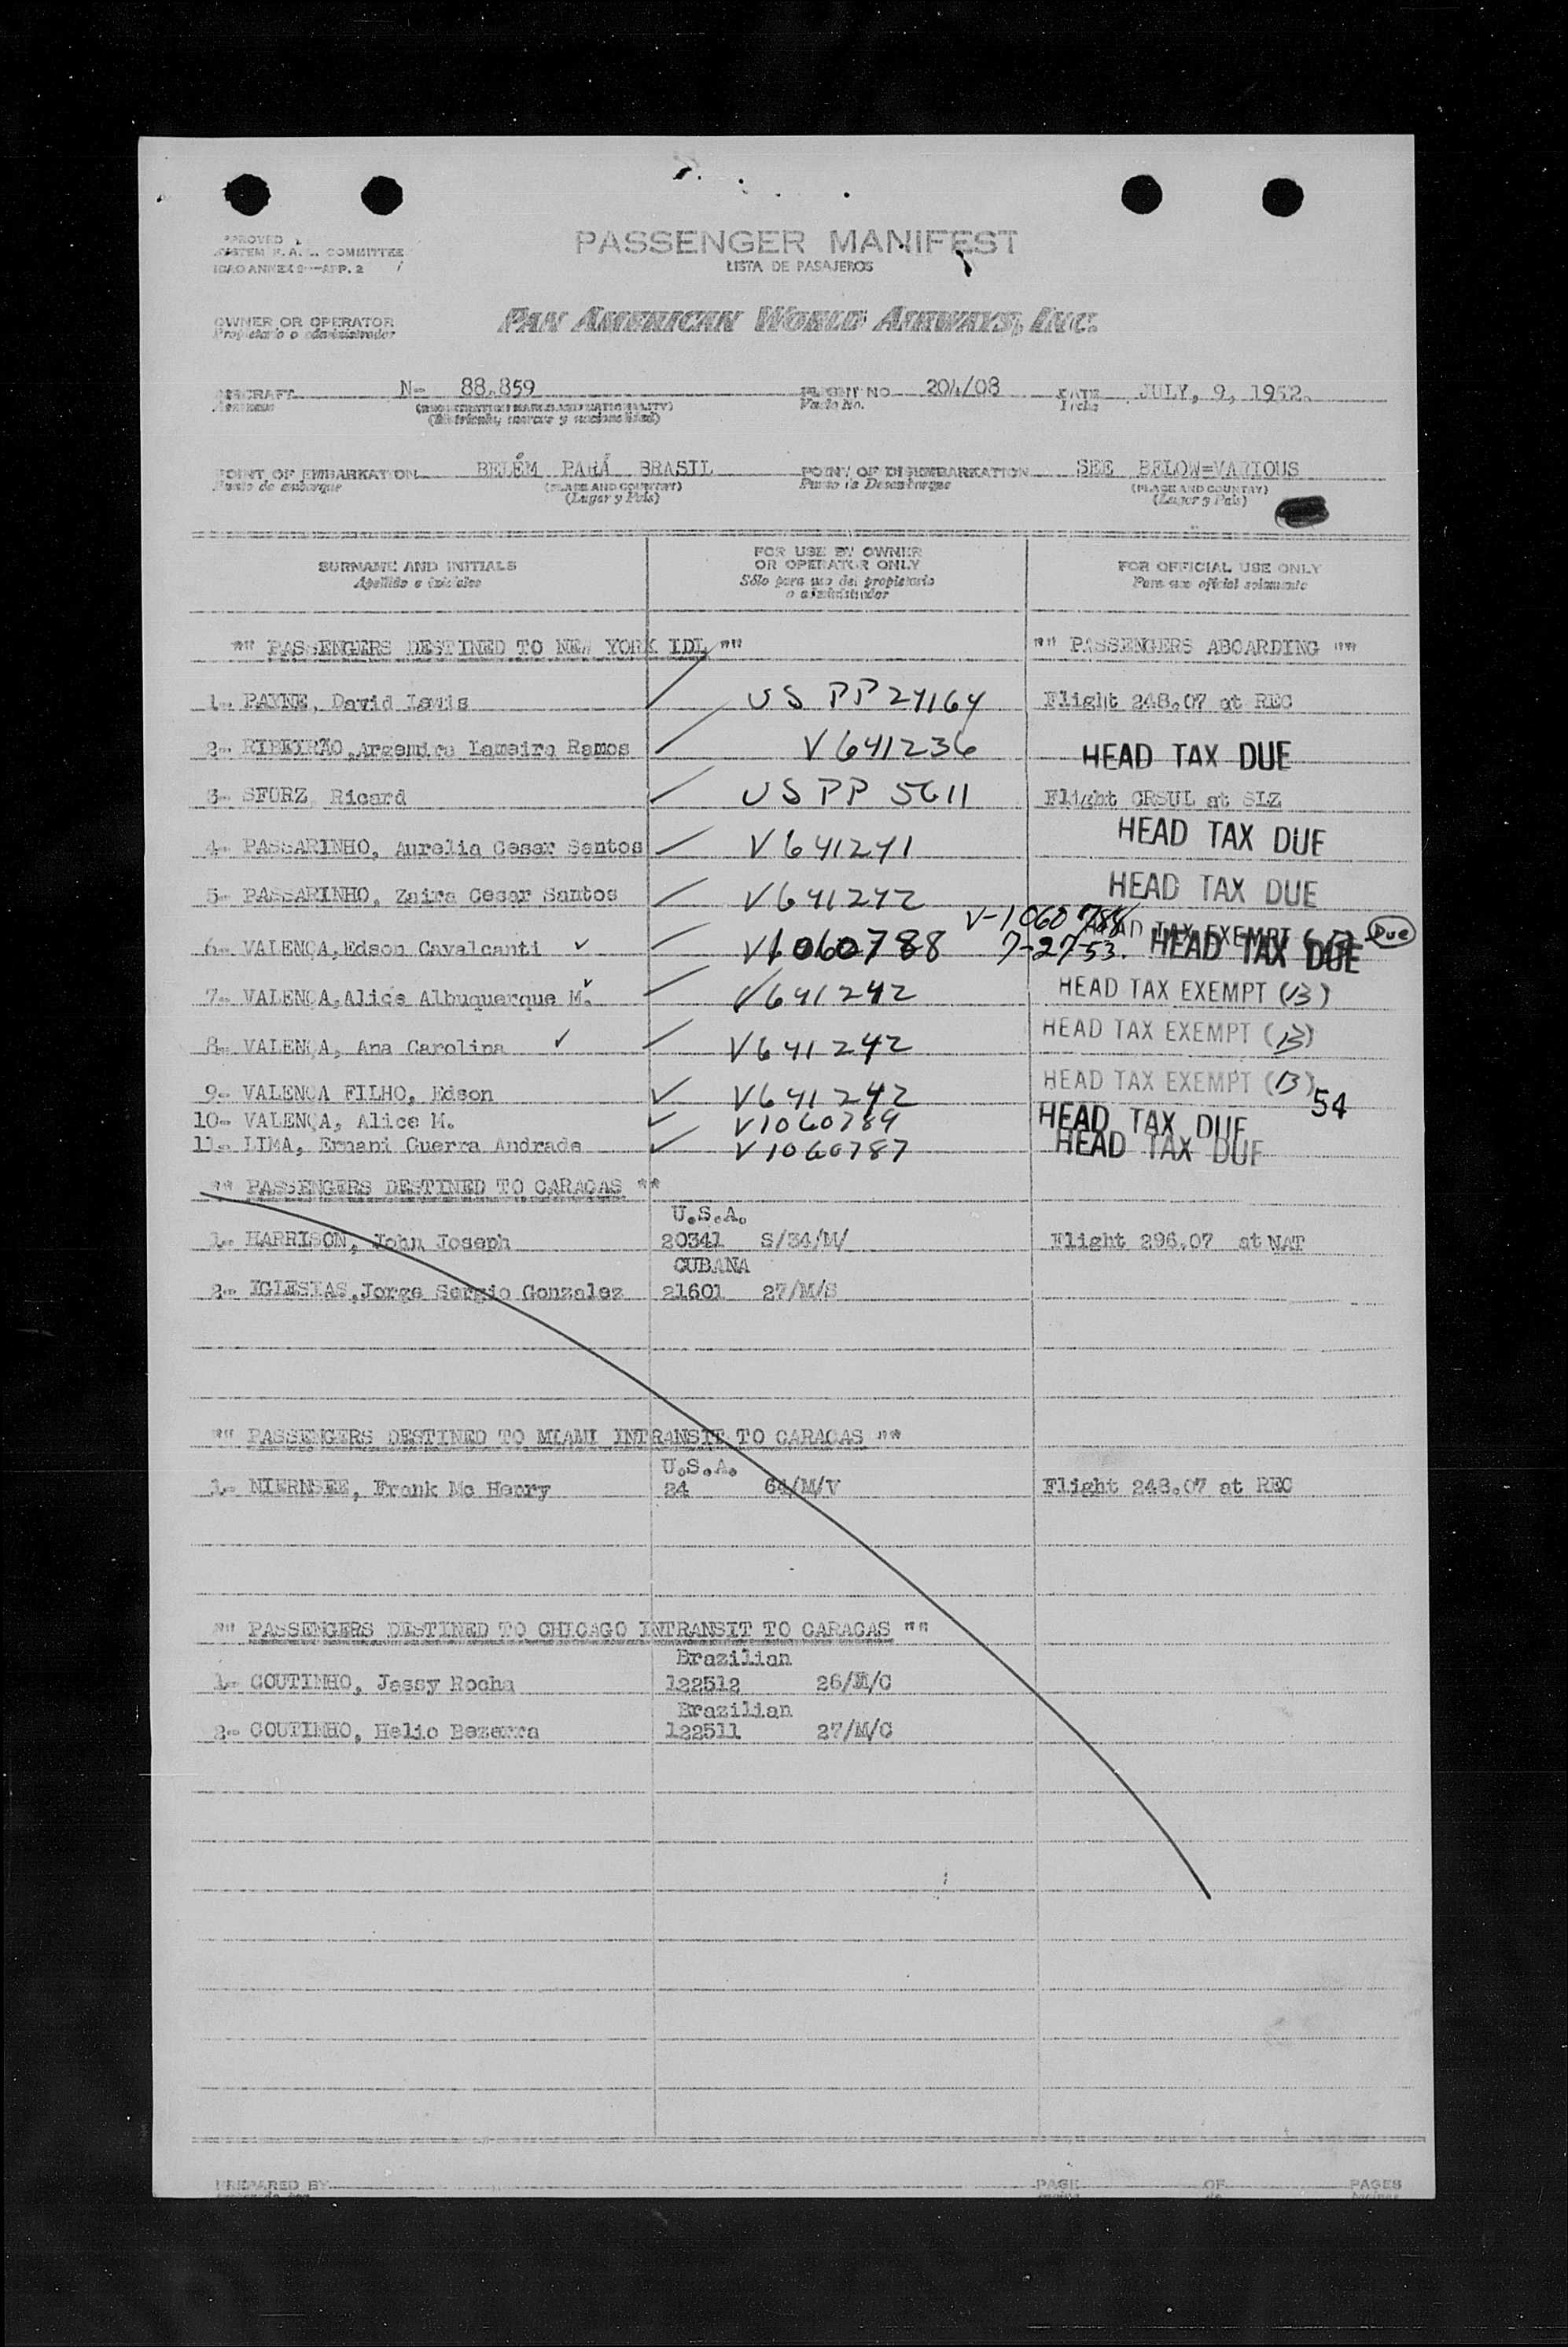 APPROVED
SYSTEM F.A.L. COMMITTEE
ICAO ANNEX 9—APP. 2
PASSENGER MANIFEST
LISTA DE PASAJEROS
OWNER OR OPERATOR
Propietario o administrador
PAN AMERICAN WORLD AIRWAYS, INC.
AIRCRAFT N- 88.859 FLIGHT NO. 204/08 DATE JULY, 9, 1952.
Aeronave (REGISTRATION MARKS AND NATIONALITY) Vuelo No. Fecha
(Matrícula, marcas y nacionalidad)
POINT OF EMBARKATION BELÉM PARÁ BRASIL POINT OF DISEMBARKATION SEE BELOW=VARIOUS
Punto de embarque (PLACE AND COUNTRY) Punto de Desembarque (PLACE AND COUNTRY)
(Lugar y País) (Lugar y País)
SURNAME AND INITIALS
Apellido e iniciales
FOR USE BY OWNER
OR OPERATOR ONLY
Sólo para uso del propietario
o administrador
FOR OFFICIAL USE ONLY
Para uso oficial solamente
"" PASSENGERS DESTINED TO NEW YORK IDL "" "" PASSENGERS ABOARDING ""
1- PAYNE, David Lewis US PP 24164 Flight 248.07 at REC
2- RIBEIRÃO,Argemiro Lameira Ramos V641236 HEAD TAX DUE
3- SFORZ Ricard US PP 5611 Flight CRSUL at SLZ
4- PASSARINHO, Aurelia Cesar Santos V641241 HEAD TAX DUE
5- PASSARINHO, Zaira Cesar Santos V641242 HEAD TAX DUE
V-1060788 HEAD TAX EXEMPT Due
6- VALENÇA,Edson Cavalcanti V1060788 7-27-53. HEAD TAX DUE
7- VALENÇA,Alice Albuquerque M. V641242 HEAD TAX EXEMPT (13)
8- VALENÇA, Ana Carolina V641242 HEAD TAX EXEMPT (13)
9- VALENÇA FILHO, Edson V641242 HEAD TAX EXEMPT (13)
54
10- VALENÇA, Alice M. V1060789 HEAD TAX DUE
11- LIMA, Ernani Guerra Andrade V1060787 HEAD TAX DUE
"" PASSENGERS DESTINED TO CARACAS ""
U.S.A.
1- HARRISON, John Joseph 20341 S/34/M/ Flight 296.07 at NAT
CUBANA
2- IGLESIAS,Jorge Sergio Gonzalez 21601 27/M/S
"" PASSENGERS DESTINED TO MIAMI INTRANSIT TO CARACAS ""
U.S.A.
1- NIERNSEE, Frank Mc Henry 24 64/M/V Flight 248.07 at REC
"" PASSENGERS DESTINED TO CHICAGO INTRANSIT TO CARACAS ""
Brazilian
1- COUTINHO, Jessy Rocha 122512 26/M/C
Brazilian
2- COUTINHO, Helio Bezerra 122511 27/M/C
PREPARED BY PAGE OF PAGES